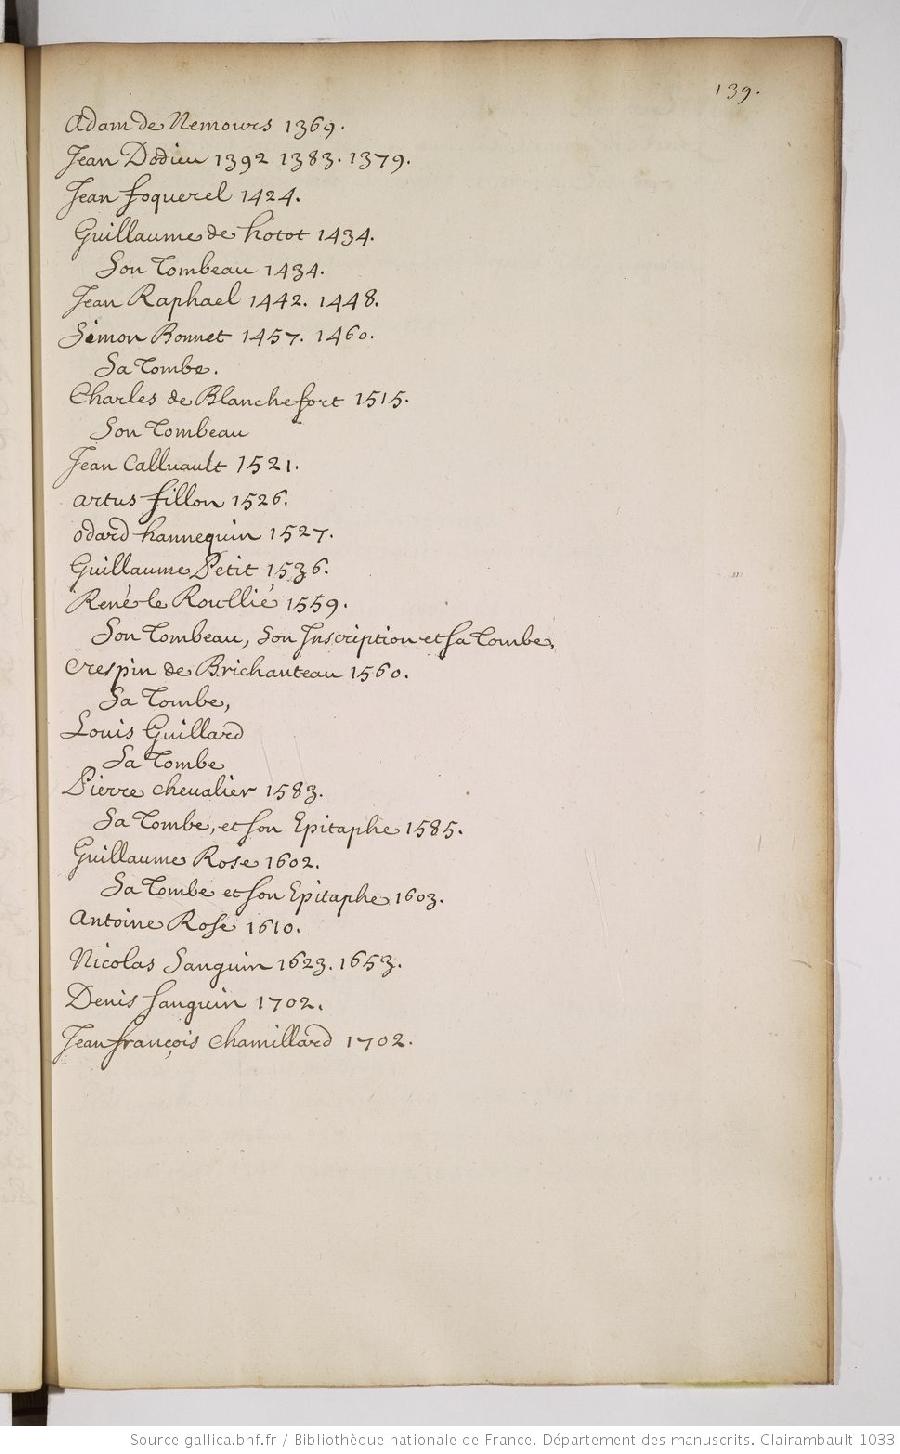 139.
Adam de Nemours 1369.
Jean Dodieu 1392 1383. 1379.
Jean foquerel 1424.
Guillaume de hotot 1434.
Son Tombeau 1434.
Jean Raphael 1442. 1448.
Simon Bonnet 1457. 1460.
Sa Tombe.
Charles de Blanchefort 1515.
Son Tombeau
Jean Calluault 1521.
artus fillon 1526.
odard hannequin 1527.
Guillaume Petit 1536.
René le Roullié 1559.
Son Tombeau, Son Inscription et sa Tombe,
Crespin de Brichanteau 1560.
Sa Tombe,
Louis Guillard
Sa Tombe
Pierre chevalier 1583.
Sa Tombe, et son Epitaphe 1585.
Guillaume Rose 1602.
Sa Tombe et son Epitaphe 1603.
Antoine Rose 1610.
Nicolas Sanguin 1623. 1653.
Denis sanguin 1702.
Jean françois Chamillard 1702.
Source gallica.bnf.fr / Bibliothèque nationale de France. Département des manuscrits. Clairambault 1033